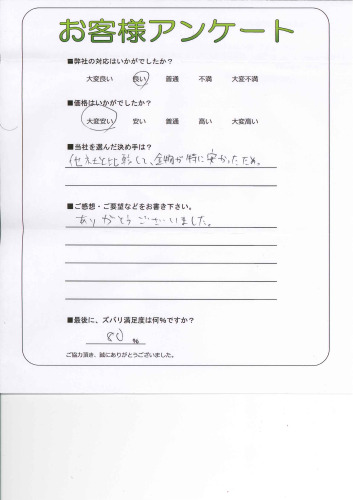 お客様アンケート
■弊社の対応はいかがでしたか？
大変良い 良い 普通 不満 大変不満
■価格はいかがでしたか？
大変安い 安い 普通 高い 大変高い
■当社を選んだ決め手は？
他社と比較して、金物が特に安かったため。
■ご感想・ご要望などをお書き下さい。
ありがとうございました。
■最後に、ズバリ満足度は何%ですか？
80 %
ご協力頂き、誠にありがとうございました。